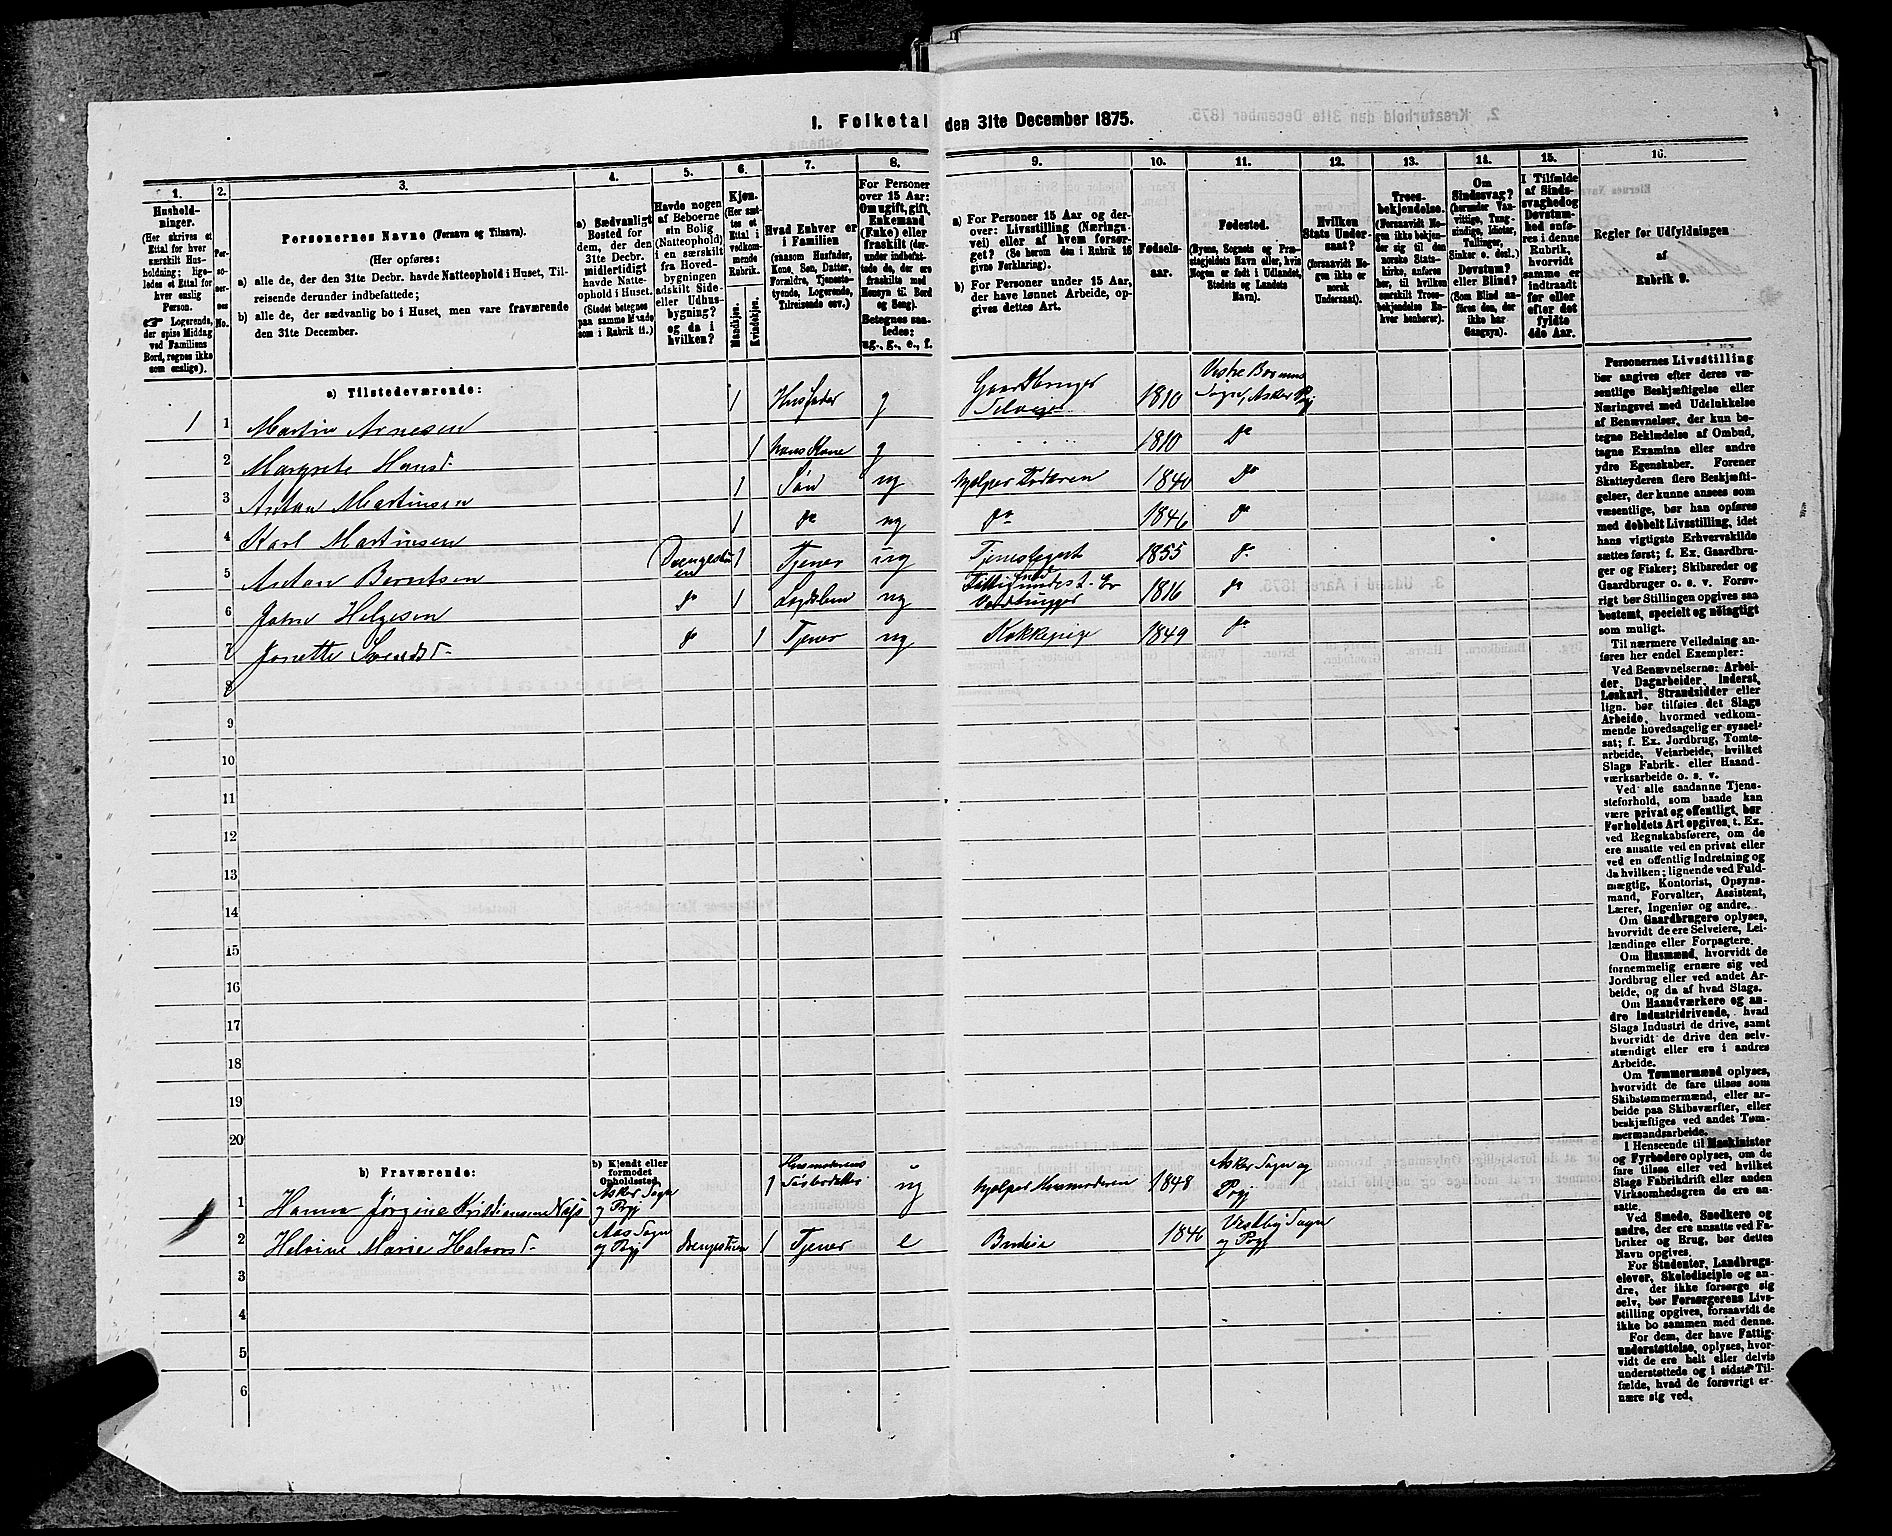 1. Folketal den 31te December 1875.
1.
Husholdninger.
(Her skrives et Ettal for hver særskilt Husholdning; ligeledes et Ettal for hver enslig Person.
☞ Logerende, der spise Middag ved Familiens Bord, regnes ikke som enslige).
2.
Personernes No.
3.
Personernes Navne (Fornavn og Tilnavn).
(Her opføres:
a) alle de, der den 31te Decbr. havde Natteophold i Huset, Tilreisende derunder indbefattede;
b) alle de, der sædvanlig bo i Huset, men vare fraværende den 31te December.
4.
a) Sædvanligt Bosted for dem, der den 31te Decbr. midlertidigt havde Natteophold i Huset.
(Stedet betegnes paa samme Maade som i Rubrik 11.)
5.
Havde nogen af Beboerne sin Bolig (Natteophold) i en særskilt fra Hovedbygningen adskilt Side- eller Udhusbygning? og da i hvilken?
6.
Kjøn.
(Her sættes et Ettal i vedkommende Rubrik.
Mandkjøn. Kvindekjøn.
7.
Hvad Enhver er i Familien
(saasom Husfader, Kone, Søn, Datter, Forældre, Tjenestetyende, Logerende, Tilreisende osv.)
8.
For Personer over 15 Aar: Om ugift, gift, Enkemand (Enke) eller fraskilt (derunder indbefattede de, der ere fraskilte med Hensyn til Bord og Seng).
Betegnes saaledes: ug., g., e., f.
9.
a) For Personer 15 Aar og derover: Livsstilling (Næringsvei) eller af hvem forsørget? (Se herom den i Rubrik 16 givne Forklaring).
b) For Personer under 15 Aar, der have lønnet Arbeide, opgives dettes Art.
10.
Fødselsaar.
11.
Fødested.
(Byens, Sognets og Præstegjeldets Navn eller, hvis Nogen er født i Udlandet, Stedets og Landets Navn).
12.
Hvilken Stats Undersaat?
(forsaavidt Nogen ikke er norsk Undersaat).
13.
Troesbekjendelse.
(Forsaavidt Nogen ikke bekjender sig til den norske Statskirke, anføres her, til hvilken særskilt Troesbekjendelse Enhver henhører).
14.
Om Sindssvag?
(herunder Vanvittige, Tungsindige, Idioter, Tullinger, Sinker o. desl.).
Døvstum? eller Blind?
(Som Blind anføres den, der ikke har Gangsyn).
15.
I Tilfælde af Sindssvaghed og Døvstumhed anføres i denne Rubrik, hvorvidt samme er indtraadt før eller efter det fyldte 4de Aar.
16.
Regler for Udfyldningen af Rubrik 9.
a) Tilstedeværende:
1 1 Martin Arnesen 1 Husfader g Gaardbruger Selveier 1810 Vestre Bærums Sogn, Asker Pgj
2 Margrete Hansd. 1 hans Kone g 1810 Do
3 Anton Martinsen 1 Søn ug hjelper Faderen 1840 Do
4 Karl Martinsen 1 do ug do 1846 do
5 Anton Berntsen Drengestuen 1 Tjener ug Tjenestegut 1855 do
6 do 1 ug 1816 do
7 Jonette Svendsd. do 1 Tjener ug Kokkepige 1849 do
8
9
10
11
12
13
14
15
16
17
18
19
20
b) Fraværende:
b) Kjendt eller formodet Opholdssted.
1 Hanna Jørgine Kristiansen Næs Asker Sogn og Pgj 1 Husmoderens Søsterdatter ug hjelper Husmoderen 1848 Asker Sogn og Pgj
2 Helvine Marie Halvorsd. Aas Sogn og Pgj Drengestuen 1 Tjener e Budeie 1846 Vestby Sogn og Pgj
3
4
5
6
Personernes Livsstilling
bør angives efter deres væ-
sentlige Beskjæftigelse eller
Næringsvei med Udelukkelse
af Benævnelser, der kun be-
tegne Beklædelse af Ombud,
tagne Examina eller andre
ydre Egenskaber. Forener
Skatteyderen flere Beskjæfti-
gelser, der kunne ansees som
væsentlige, bør han opføres
med dobbelt Livsstilling, idet
hans vigtigste Erhvervskilde
sættes først; f. Ex. Gaardbru-
ger og Fisker; Skibsreder og
Gaardbruger o. s. v. Forøv-
rigt bør Stillingen opgives saa
bestemt, specielt og nøiagtigt
som muligt.
Til nærmere Veiledning an-
føres her endel Exempler:
Ved Benævnelserne: Arbei-
der, Dagarbeider, Inderst,
Løskarl, Strandsidder eller
lign. bør tilføies det Slags
Arbeide, hvormed vedkom-
mende hovedsagelig er syssel-
sat; f. Ex. Jordbrug, Tomte-
arbeide, Veiarbeide, hvilket
Slags Fabrik- eller Haand-
værksarbeide o. s. v.
Ved alle saadanne Tjene-
steforhold, som baade kan
være privat og offentligt, bør
Forholdets Art opgives, t. Ex.
ved Regnskabsførere, om de
ere ansatte ved en privat eller
ved en offentlig Indretning og
da hvilken; lignende ved Fuld-
mægtig, Kontorist, Opsyns-
mand, Forvalter, Assistent,
Lærer, Ingeniør og andre.
Om Gaardbrugere oplyses,
hvorvidt de ere Selveiere, Lei-
lændinge eller Forpagtere.
Om Husmænd, hvorvidt de
fornemmelig ernære sig ved
Jordbrug eller ved andet Ar-
beide, og da af hvad Slags.
Om Haandværkere og an-
dre Industridrivende, hvad
Slags Industri de drive, samt
hvorvidt de drive den selv-
stændigt eller ere i andres
Arbeide.
Om Tømmermænd oplyses,
hvorvidt de fare tilsøs som
Skibstømmermænd, eller ar-
beide paa Skibsværfter, eller
beskjæftiges ved andet Tøm-
mermandsarbeide.
I Henseende til Maskinister
og Fyrbødere oplyses, om de
fare tilsøs eller ved hvilket
Slags Fabrikdrift eller anden
Virksomhedsgren de ere an-
satte.
Ved Smede, Snedkere og
andre, der ere ansatte ved Fa-
briker og Brug, bør dettes
Navn opgives.
For Studenter, Landbrugs-
elever, Skoledisciple og an-
dre, der ikke forsørge sig
selv, bør Forsørgerens Livs-
stilling opgives, forsaavidt de
ikke bo sammen med denne.
For dem, der have Fattig-
understøttelse, oplyses, hvor-
vidt de ere helt eller delvis
understøttede og i sidste Til-
fælde, hvad de forøvrigt er-
nære sig ved.